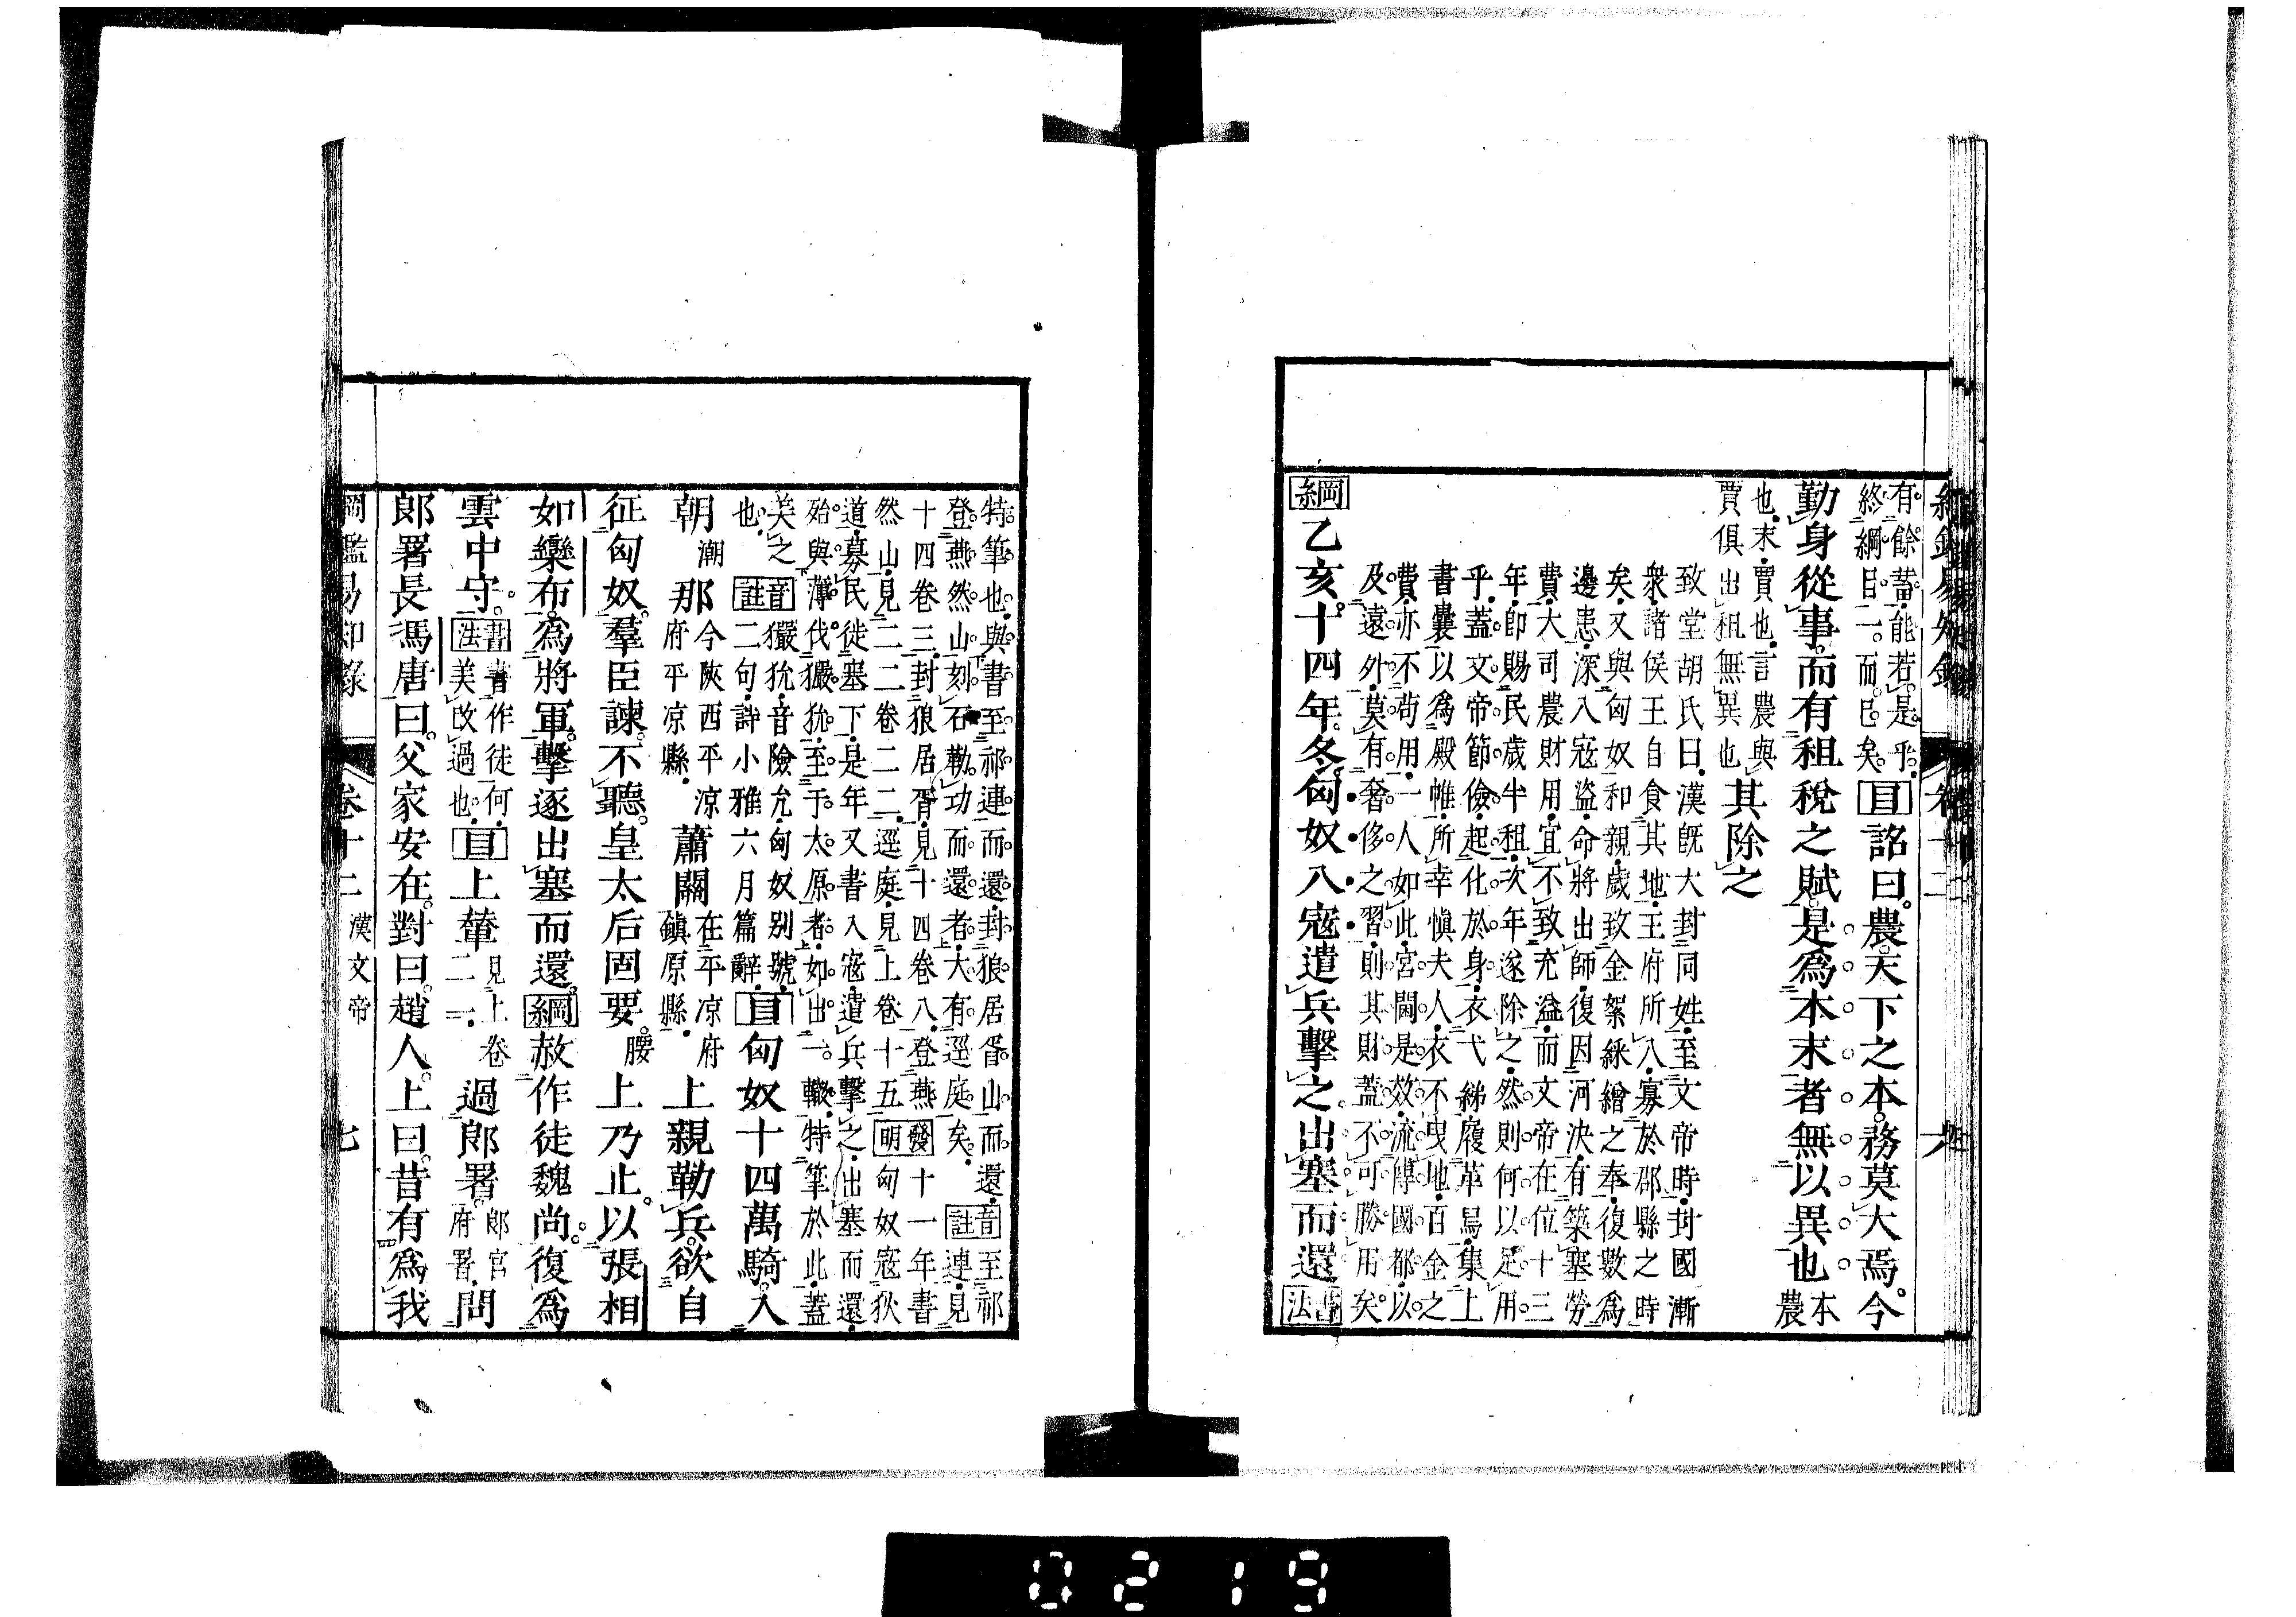 有餘蓄能若是乎
終綱目一而已矣
目詔曰農天下之本務莫大焉今
勤身從事而有租稅之賦是爲本末者無以異也
本
農
也末賈也言農與
賈俱出租無異也
其除之
致堂胡氏曰漢旣大封同姓至文帝時封國漸
衆諸侯王自食其地王府所入寡於郡縣之時
矣又與匈奴和親歲致金絮綵繒之奉復數爲
邊患深入寇盜命將出師復因河決有築塞勞
費大司農財用宜不致充溢而文帝在位十三
年卽賜民歲半租次年遂除之然則何以足用
乎蓋文帝節儉起化於身衣弋綈履革舃集上
書囊以爲殿帷所幸愼夫人衣不曳地百金之
費亦不苟用一人如此宮閫是效流傳國都以
及遠外莫有奢侈之習則其財蓋不可勝用矣
綱乙亥十四年冬匈奴入寇遣兵擊之出塞而還書法
特筆也與書至祁連而還封狼居胥山而還
登燕然山刻石勒功而還者大有逕庭矣
音註至祁連見
十四卷三封狼居胥見十四卷八登燕
然山見二二卷二二逕庭見上卷十五
發明十一年書匈奴寇狄
道募民徙塞下是年又書入寇遣兵擊之出塞而還
殆與薄伐玁狁至于太原者如出一轍特筆於此蓋
美之也
音註玁狁音險允匈奴別號
二句詩小雅六月篇辭
目匈奴十四萬騎入
朝潮那今陝西平涼府平凉縣蕭關在平凉府鎭原縣上親勒兵欲自
征匈奴羣臣諫不聽皇太后固要腰上乃止以張相
如欒布爲將軍擊逐出塞而還綱赦作徒魏尚復爲
雲中守書法書作徒何美改過也目上輦見上卷二一過郎署郎官府署問
郎署長馮唐曰父家安在對曰趙人上曰昔有爲我
綱鑑易知錄
卷十二
漢文帝
七
0219